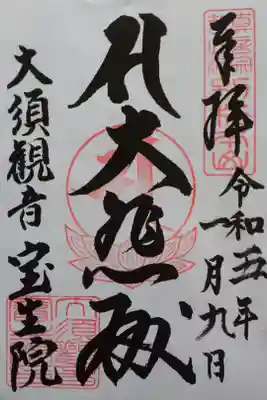 奉拝
令和五年
一月九日
大悲殿
大須観音 宝生院